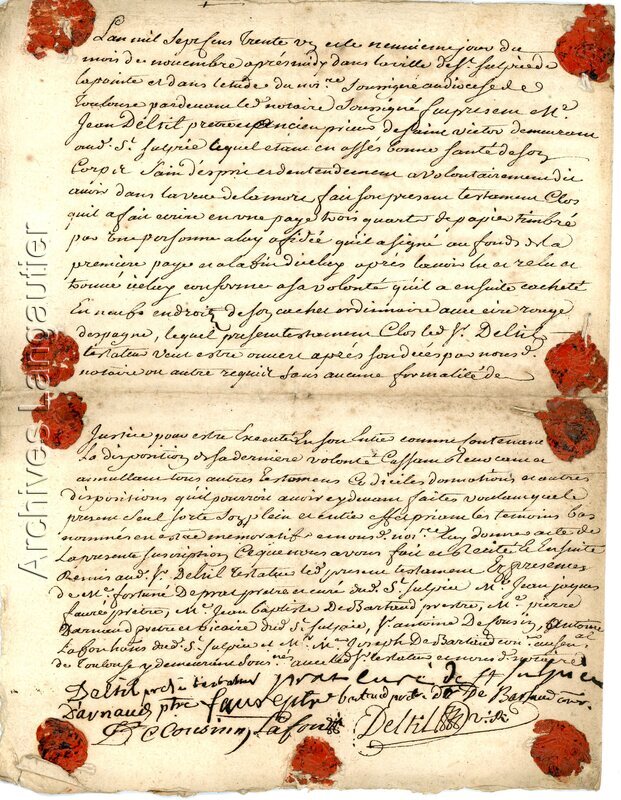 L'an mil sept cens trente un et le neuvieme jour du
mois de novembre apres midy dans la ville de St. Sulpice de
la pointe et dans l'etude du no.re soussigné au diocese de
Toulouse par devant led. notaire soussigné fut presen Me.
Jean Deltil pretre et ancien prieur de Saint Victor demeurant
aud. St. Sulpice lequel etant en assés bonne santé de son
Corps Sain d'esprit et dentendement a volontairement dit
avoir dans la veue de la mort fait son present testament Clos
qu'il a fait ecrire en une page trois quarts de papier timbré
par une personne a luy affidée qu'il a signé au fonds de la
premiere page et a la fin diceluy après l'avoir lu et relu et
trouvé iceluy conforme a sa volonté qu'il a ensuite cacheté
En neuf endroits de son cachet ordinnaire avec cire rouge
despagne, lequel present testament Clos led. Sr. Deltil
testateur veut estre ouvert après son deces par nous d.
notaire ou autre requis sans aucune formalité de
Justice pour estre Executé En son Entier comme contenant
La disposition de sa derniere volonté Cassant Revocant et
annullant tous autres testamens Codiciles donnations et autres
dispositions qu'il pourroit avoir cy devant faites voulant que le
present seul sorte son plein et entier effet priant les temoins bas
nommés en estre memoratifs et nous d. no.re luy donner acte de
La presente suscription Ce que nous avons fait et Ensuite
Remis aud. Sr. Deltil testateur led. present testament En presence
de Me. fortuné De prat pretre et curé dud. St. Sulpice Me. Jean jacques
faure pretre, Me. Jean Baptiste De Bartaud prestre, Me. pierre
Darnaud pretre et vicaire dud. St. Sulpice, Sr. antoine De Cousin, antoine
Lafon dud. St. Sulpice et Me. Joseph De Bartaud
de Toulouse y demeurant sous.nés avec led. Sr. testateur et nous d. notaire
Deltil pretre testateur prat curé de St Sulpice
Darnaud ptre faure ptre bartaud pretre De Bartaud
De Cousin Lafon Deltil
Archives Langautier